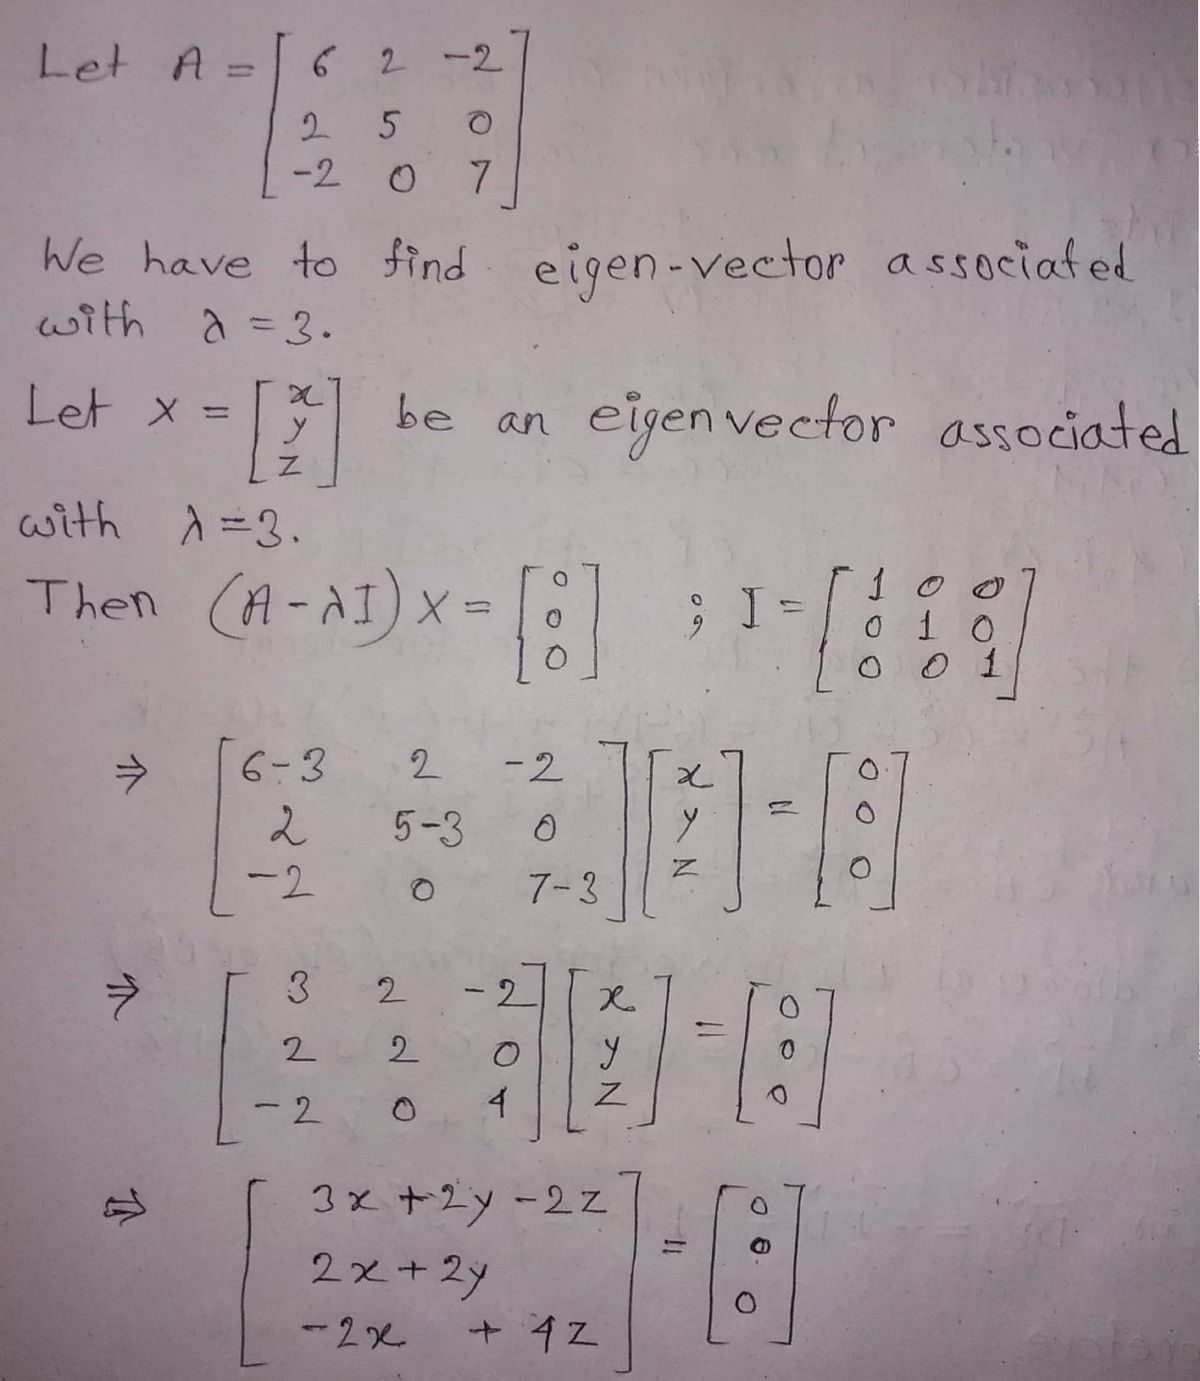 Let A = [ 6 2 -2
2 5 0
-2 0 7 ]
We have to find eigen-vector associated
with λ = 3.
Let X = [ x
y
z ] be an eigenvector associated
with λ = 3.
Then (A - λI) X = [ 0 0 0 ] ; I = [ 1 0 0
0 1 0
0 0 1 ]
⇒ [ 6-3 2 -2 ] [ x ] = [ 0 ]
[ 2 5-3 0 ] [ y ] [ 0 ]
[ -2 0 7-3 ] [ z ] [ 0 ]
⇒ [ 3 2 -2 ] [ x ] = [ 0 ]
[ 2 2 0 ] [ y ] [ 0 ]
[ -2 0 4 ] [ z ] [ 0 ]
⇒ [ 3x + 2y - 2z ] = [ 0 ]
[ 2x + 2y ] [ 0 ]
[ -2x + 4z ] [ 0 ]